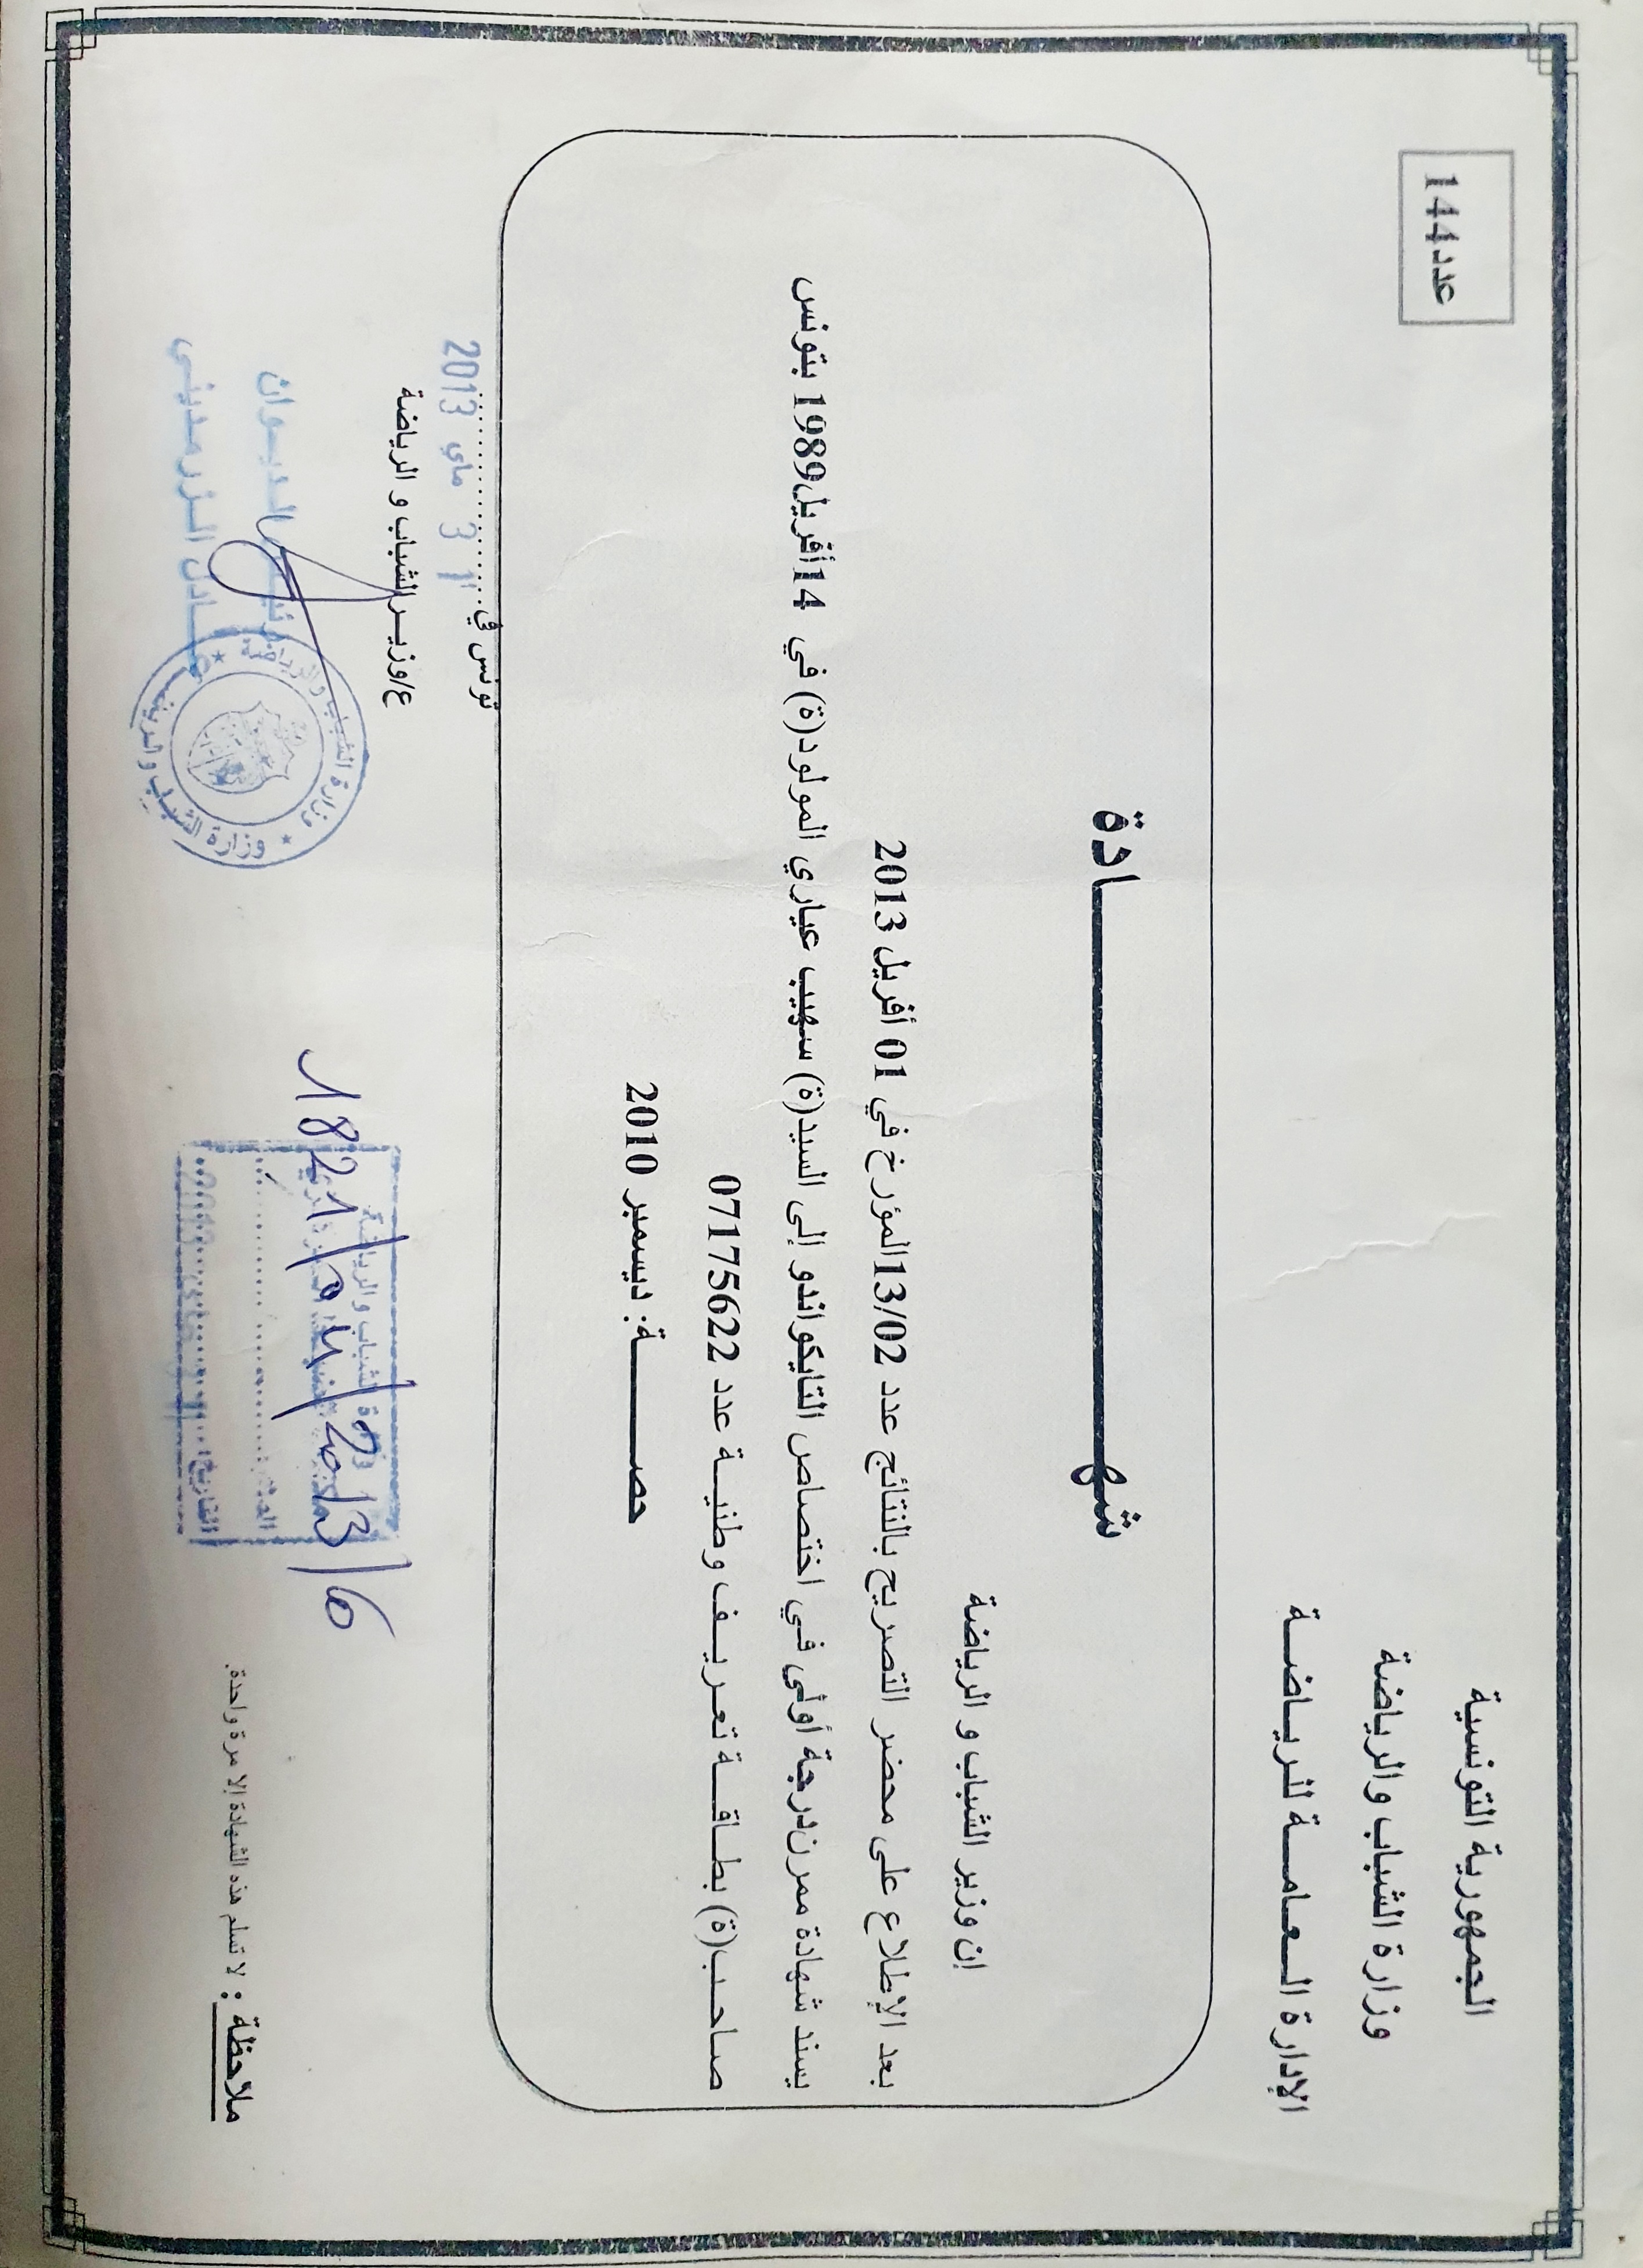 الجمهورية التونسية
وزارة الشباب والرياضة
الإدارة العامة للرياضة
عدد144
شهادة
إن وزير الشباب و الرياضة
بعد الإطلاع على محضر التصريح بالنتائج عدد 13/02المؤرخ في 01 أفريل 2013
يسند شهادة ممرن درجة أولى في اختصاص التايكواندو إلى السيد(ة) سهيب عياري المولود(ة) في 14أفريل1989 بتونس
صاحب(ة) بطاقة تعريف وطنية عدد 07175622
حصة: ديسمبر 2010
تونس في
3 ماي 2013
ع/وزير الشباب و الرياضة
الديوان
وزارة الشباب والرياضة
وزارة الشباب والرياضة
التاريخ
ملاحظة : لا تسلم هذه الشهادة إلا مرة واحدة.